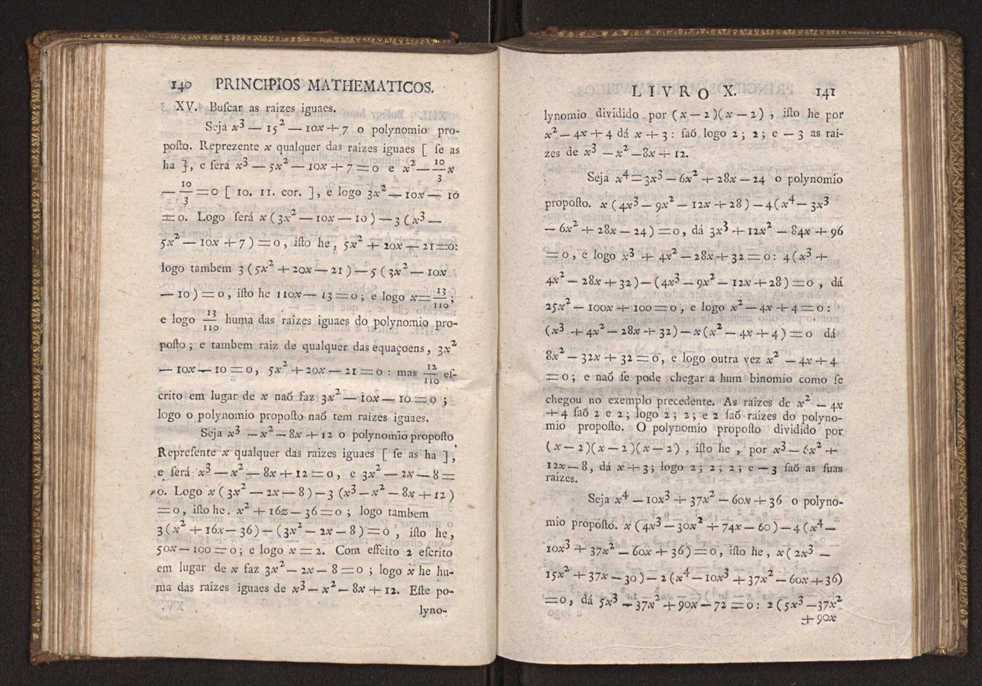 140 PRINCIPIOS MATHEMATICOS.
XV. Buſcar as raizes iguaes.
Seja x³ — 15² — 10x + 7 o polynomio pro-
poſto. Reprezente x qualquer das raizes iguaes [ ſe as
ha ], e ſerá x³ — 5x² — 10x + 7 = 0 e x² — 10/3 x
— 10/3 = 0 [ 10. 11. cor. ], e logo 3x² — 10x — 10
= 0. Logo ſerá x (3x² — 10x — 10) — 3 (x³ —
5x² — 10x + 7) = 0, iſto he, 5x² + 20x — 21 = 0:
logo tambem 3 (5x² + 20x — 21) — 5 (3x² — 10x
— 10) = 0, iſto he 110x — 13 = 0; e logo x = 13/110;
e logo 13/110 huma das raizes iguaes do polynomio pro-
poſto; e tambem raiz de qualquer das equaçoens, 3x²
— 10x — 10 = 0, 5x² + 20x — 21 = 0: mas 12/110 eſ-
crito em lugar de x naõ faz 3x² — 10x — 10 = 0;
logo o polynomio propoſto naõ tem raizes iguaes.
Seja x³ — x² — 8x + 12 o polynomio propoſto
Repreſente x qualquer das raizes iguaes [ ſe as ha ],
e ſerá x³ — x² — 8x + 12 = 0, e 3x² — 2x — 8 =
0. Logo x (3x² — 2x — 8) — 3 (x³ — x² — 8x + 12)
= 0, iſto he. x² + 16x — 36 = 0; logo tambem
3 (x² + 16x — 36) — (3x² — 2x — 8) = 0, iſto he,
50x — 100 = 0; e logo x = 2. Com effeito 2 eſcrito
em lugar de x faz 3x² — 2x — 8 = 0; logo x he hu-
ma das raizes iguaes de x³ — x² — 8x + 12. Eſte po-
lyno-
LIVRO X. 141
lynomio dividido por (x — 2)(x — 2), iſto he por
x² — 4x + 4 dá x + 3: ſaõ logo 2; 2; e — 3 as rai-
zes de x³ — x² — 8x + 12.
Seja x⁴ = 3x³ — 6x² + 28x — 24 o polynomio
propoſto. x (4x³ — 9x² — 12x + 28) — 4 (x⁴ — 3x³
— 6x² + 28x — 24) = 0, dá 3x³ + 12x² — 84x + 96
= 0, e logo x³ + 4x² — 28x + 32 = 0: 4 (x³ +
4x² — 28x + 32) — (4x³ — 9x² — 12x + 28) = 0, dá
25x² — 100x + 100 = 0, e logo x² — 4x + 4 = 0:
(x³ + 4x² — 28x + 32) — x (x² — 4x + 4) = 0 dá
8x² — 32x + 32 = 0, e logo outra vez x² — 4x + 4
= 0; e naõ ſe pode chegar a hum binomio como ſe
chegou no exemplo precedente. As raizes de x² — 4x
+ 4 ſaõ 2 e 2; logo 2; 2; e 2 ſaõ raizes do polyno-
mio propoſto. O polynomio propoſto dividido por
(x — 2)(x — 2)(x — 2), iſto he, por x³ — 6x² +
12x — 8, dá x + 3; logo 2; 2; 2; e — 3 ſaõ as ſuas
raizes.
Seja x⁴ — 10x³ + 37x² — 60x + 36 o polyno-
mio propoſto. x (4x³ — 30x² + 74x — 60) — 4 (x⁴ —
10x³ + 37x² — 60x + 36) = 0, iſto he, x (2x³ —
15x² + 37x — 30) — 2 (x⁴ — 10x³ + 37x² — 60x + 36)
= 0, dá 5x³ — 37x² + 90x — 72 = 0: 2 (5x³ — 37x²
+ 90x